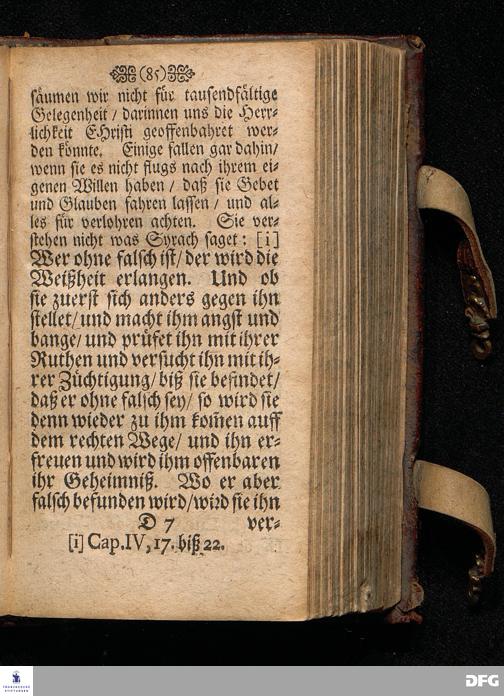 (85)
säumen wir nicht für tausendfältige
Gelegenheit / darinnen uns die Herr-
lichkeit CHristi geoffenbahret wer-
den könnte. Einige fallen gar dahin/
wenn sie es nicht flugs nach ihrem ei-
genen Willen haben / daß sie Gebet
und Glauben fahren lassen / und al-
les für verlohren achten. Sie ver-
stehen nicht was Syrach saget: [i]
Wer ohne falsch ist/ der wird die
Weißheit erlangen. Und ob
sie zuerst sich anders gegen ihn
stellet/ und macht ihm angst und
bange/ und prüfet ihn mit ihrer
Ruthen und versucht ihn mit ih-
rer Züchtigung/ biß sie befindet/
daß er ohne falsch sey/ so wird sie
denn wieder zu ihm kom̄en auff
dem rechten Wege/ und ihn er-
freuen und wird ihm offenbaren
ihr Geheimniß. Wo er aber
falsch befunden wird/ wird sie ihn
D 7 ver-
[i] Cap.IV, 17. biß 22.
FRANCKESCHE
STIFTUNGEN
DFG